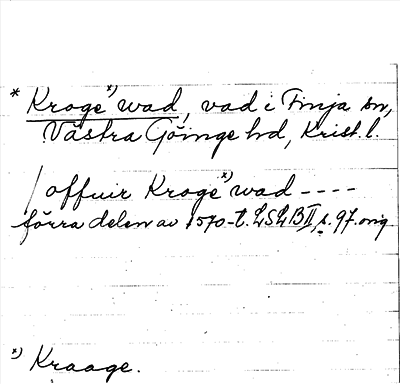 * Kroge*) wad, vad i Finja sn,
Västra Göinge hd, Krist. l.
/ offuir Kroge*) wad ----
förra delen av 1570-t. LSLB II, s. 97. orig
*) Kraage.